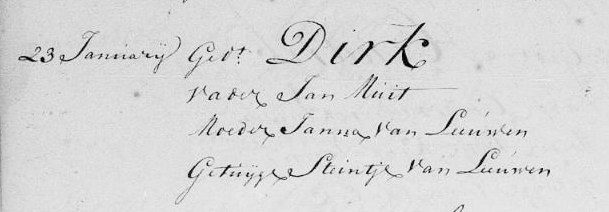 23 Januarij Gedt. Dirk
vader Jan Muit
Moeder Janna van Leeuwen
Getuyge Steintje van Leeuwen